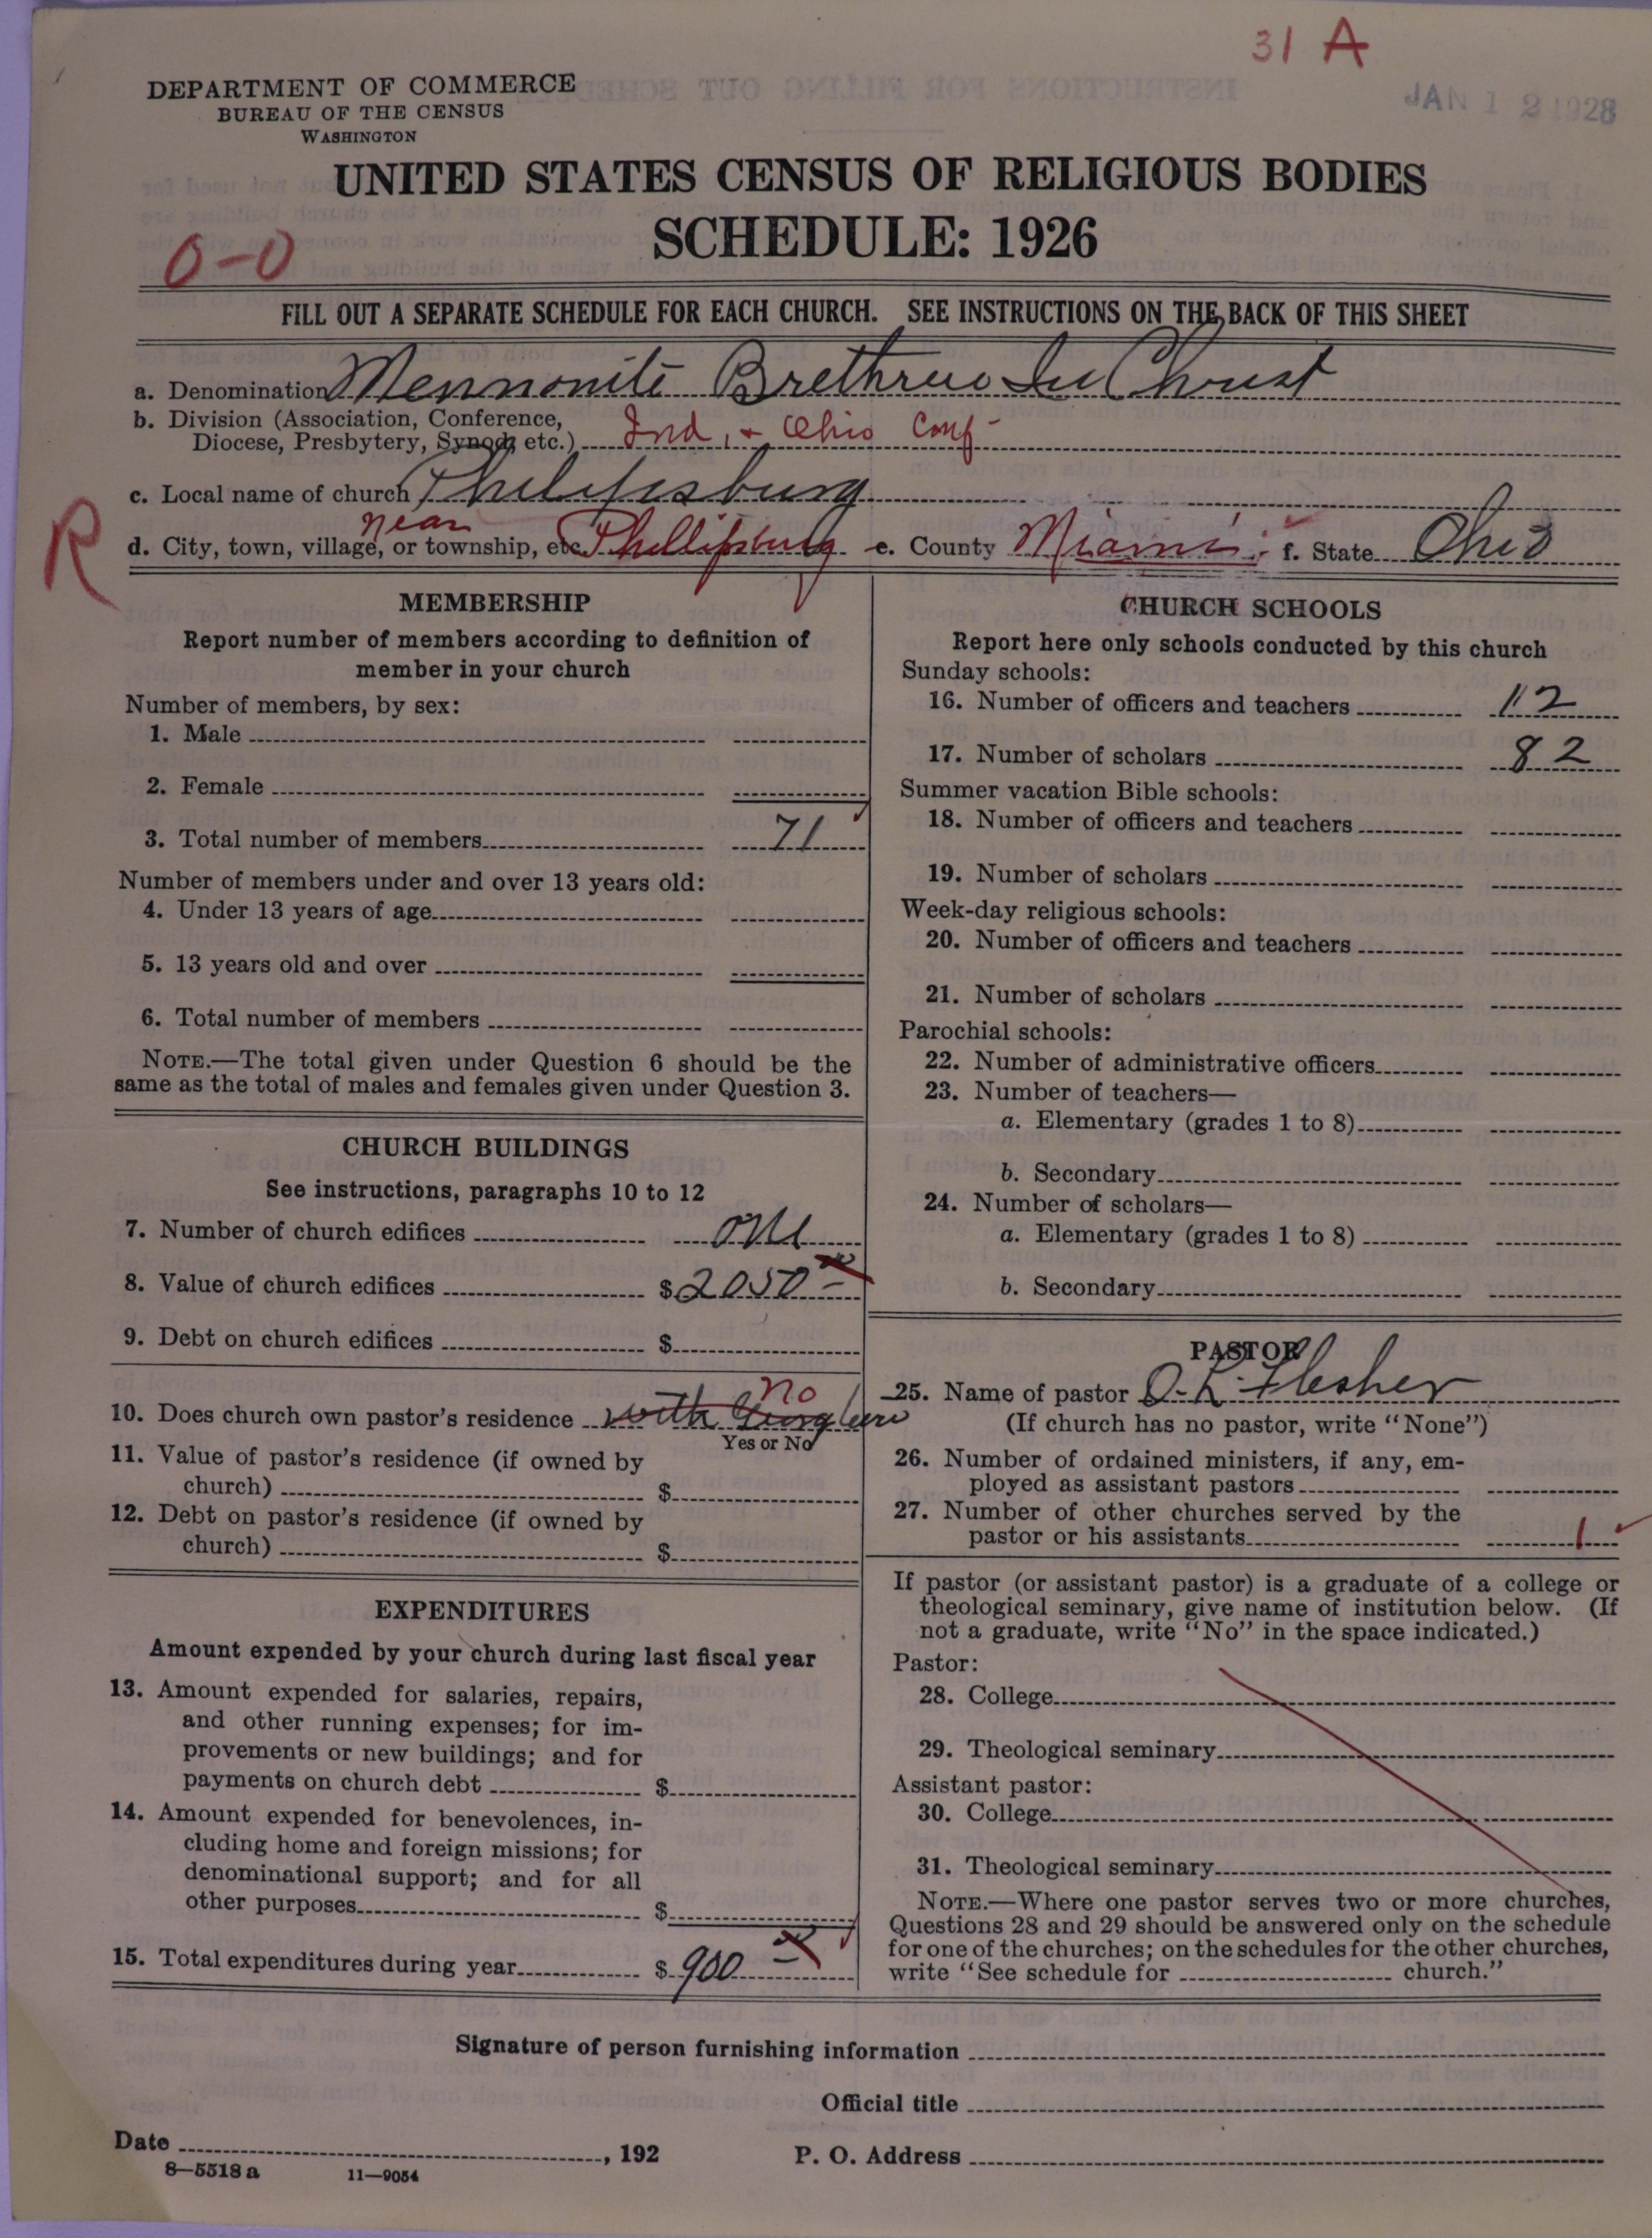 31 A
JAN 12 1928
DEPARTMENT OF COMMERCE
BUREAU OF THE CENSUS
WASHINGTON
UNITED STATES CENSUS OF RELIGIOUS BODIES
SCHEDULE: 1926
0-0
FILL OUT A SEPARATE SCHEDULE FOR EACH CHURCH. SEE INSTRUCTIONS ON THE BACK OF THIS SHEET
a. Denomination Mennonite Brethren In Christ
b. Division (Association, Conference,
Diocese, Presbytery, Synod, etc.) Ind. + Ohio Conf-
c. Local name of church Philipsburg
R
near
d. City, town, village, or township, etc. Phillipsburg e. County Miami f. State Ohio
MEMBERSHIP
Report number of members according to definition of
member in your church
Number of members, by sex:
1. Male
2. Female
3. Total number of members 71
Number of members under and over 13 years old:
4. Under 13 years of age
5. 13 years old and over
6. Total number of members
NOTE.—The total given under Question 6 should be the
same as the total of males and females given under Question 3.
CHURCH BUILDINGS
See instructions, paragraphs 10 to 12
7. Number of church edifices one
8. Value of church edifices $2050
9. Debt on church edifices $
no
10. Does church own pastor's residence with
Yes or No
11. Value of pastor's residence (if owned by
church) $
12. Debt on pastor's residence (if owned by
church) $
EXPENDITURES
Amount expended by your church during last fiscal year
13. Amount expended for salaries, repairs,
and other running expenses; for im-
provements or new buildings; and for
payments on church debt $
14. Amount expended for benevolences, in-
cluding home and foreign missions; for
denominational support; and for all
other purposes $
15. Total expenditures during year $ 900
CHURCH SCHOOLS
Report here only schools conducted by this church
Sunday schools:
16. Number of officers and teachers 12
17. Number of scholars 82
Summer vacation Bible schools:
18. Number of officers and teachers
19. Number of scholars
Week-day religious schools:
20. Number of officers and teachers
21. Number of scholars
Parochial schools:
22. Number of administrative officers
23. Number of teachers—
a. Elementary (grades 1 to 8)
b. Secondary
24. Number of scholars—
a. Elementary (grades 1 to 8)
b. Secondary
PASTOR
25. Name of pastor Flesher
(If church has no pastor, write "None")
26. Number of ordained ministers, if any, em-
ployed as assistant pastors
27. Number of other churches served by the
pastor or his assistants 1
If pastor (or assistant pastor) is a graduate of a college or
theological seminary, give name of institution below. (If
not a graduate, write "No" in the space indicated.)
Pastor:
28. College
29. Theological seminary
Assistant pastor:
30. College
31. Theological seminary
NOTE.—Where one pastor serves two or more churches,
Questions 28 and 29 should be answered only on the schedule
for one of the churches; on the schedules for the other churches,
write "See schedule for church."
Signature of person furnishing information
Official title
Date , 192 P. O. Address
8—5518 a 11—9054